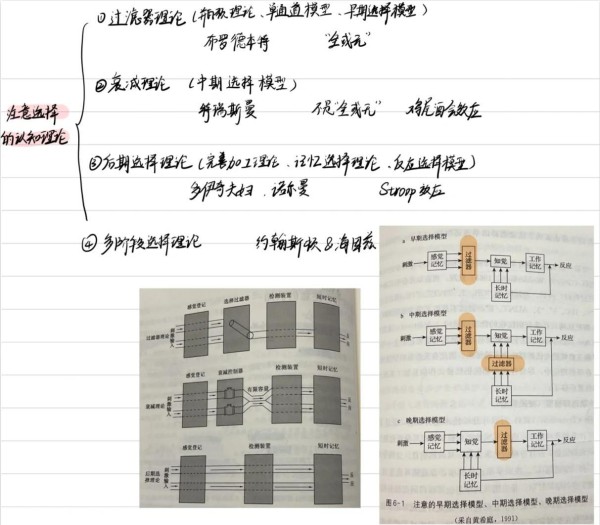 ①过滤器理论（瓶颈理论、单通道模型、早期选择模型）
布罗德本特 “全或无”
注意选择
的认知理论
②衰减理论（中期选择模型）
特瑞斯曼 不是“全或无” 鸡尾酒会效应
③后期选择理论（完善加工理论、记忆选择理论、反应选择模型）
多伊奇夫妇、诺尔曼 Stroop效应
④多阶段选择理论 约翰斯顿&海因兹
感觉登记 选择过滤器 检测装置 短时记忆
过滤器理论 刺激输入
感觉登记 衰减控制器 检测装置 短时记忆
有限容量
衰减理论 刺激输入
感觉登记 检测装置 短时记忆
后期选择理论 刺激输入
a 早期选择模型
刺激 感觉记忆 过滤器 知觉 工作记忆 反应
长时记忆
b 中期选择模型
刺激 感觉记忆 过滤器 知觉 工作记忆 反应
过滤器
长时记忆
c 晚期选择模型
刺激 感觉记忆 知觉 过滤器 工作记忆 反应
长时记忆
图6-1 注意的早期选择模型、中期选择模型、晚期选择模型
（采自黄希庭，1991）